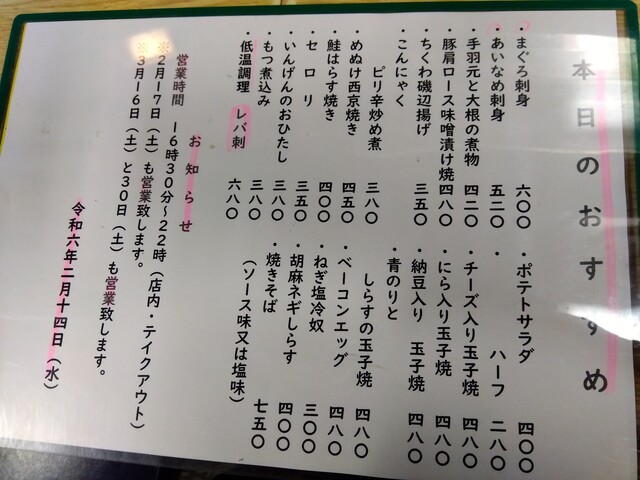 本日のおすすめ
・まぐろ刺身 六〇〇
・あいなめ刺身 五二〇
・手羽元と大根の煮物 四二〇
・豚肩ロース味噌漬け焼 四八〇
・ちくわ磯辺揚げ 三五〇
・こんにゃく
ピリ辛炒め煮 三八〇
・めぬけ西京焼き 四五〇
・鮭はらす焼き 四〇〇
・セロリ 三五〇
・いんげんのおひたし 三八〇
・もつ煮込み 三八〇
・低温調理 レバ刺 六八〇
・ポテトサラダ 四〇〇
・ ハーフ 二八〇
・チーズ入り玉子焼 四八〇
・にら入り玉子焼 四八〇
・納豆入り 玉子焼 四八〇
・青のりと
しらすの玉子焼 四八〇
・ベーコンエッグ 四八〇
・ねぎ塩冷奴 三〇〇
・胡麻ネギしらす 四〇〇
・焼きそば 七五〇
(ソース味又は塩味)
お知らせ
営業時間 16時30分~22時(店内・テイクアウト)
※2月17日(土)も営業致します。
※3月16日(土)と30日(土)も営業致します。
令和六年二月十四日(水)